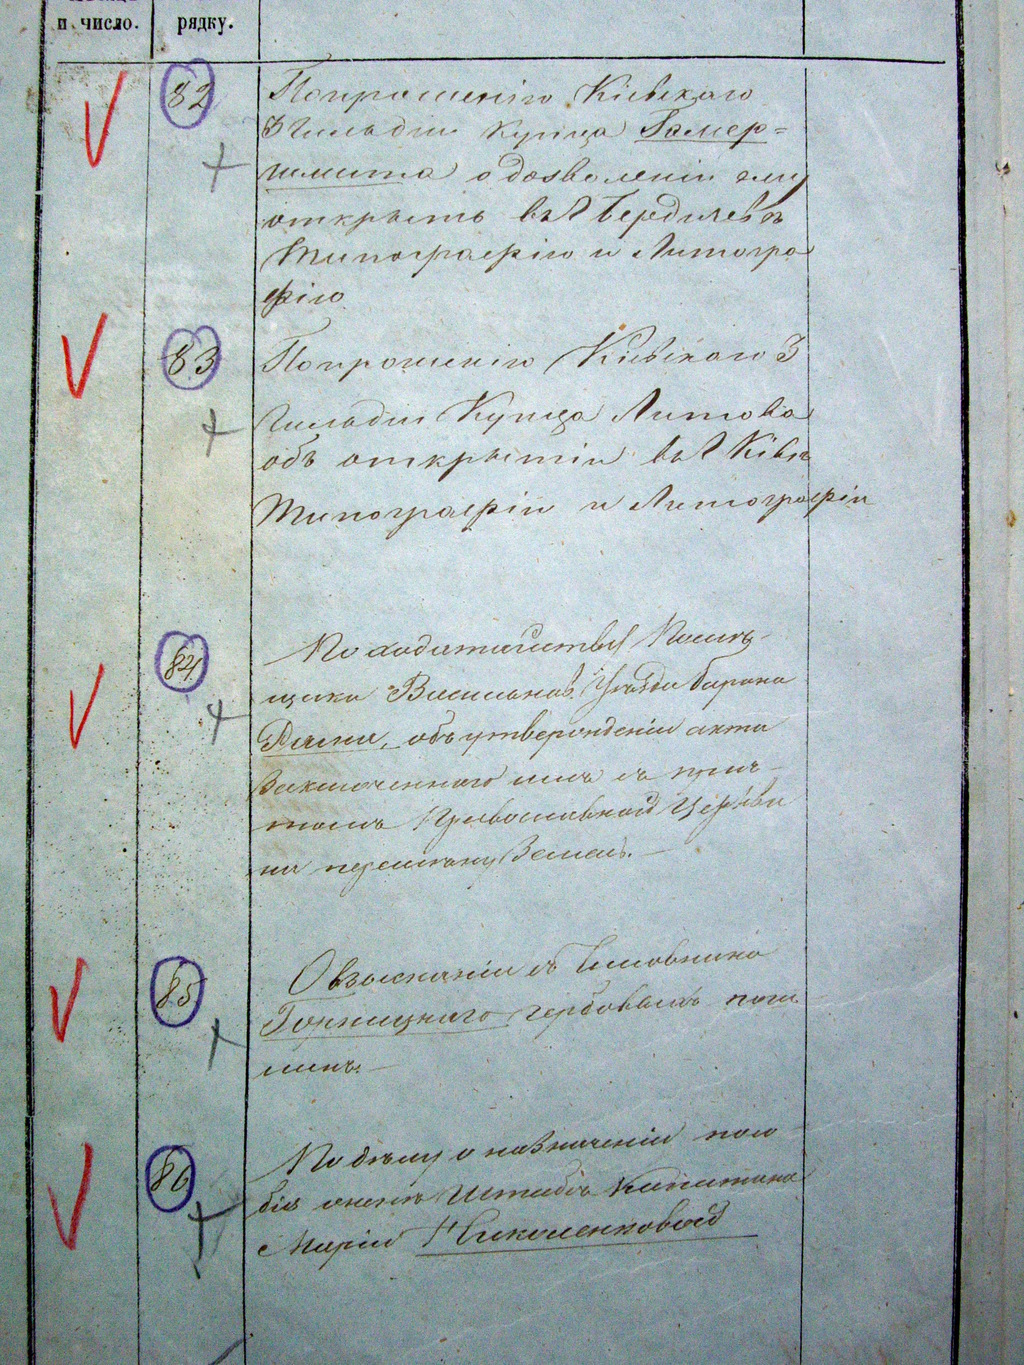 и число.
рядку.
82
По прошенію Кіевскаго
3 Гильдіи Купца Гамер=
шмита о дозволеніи ему
открыть въ Бердичевѣ
Типографію и Литогра
фію
83
По прошенію Кіевскаго 3
Гильдіи Купца Литова
объ открытіи въ Кіевѣ
Типографіи и Литографіи
84.
По ходатайству Помѣ-
щика Уѣзда Барона
объ утвержденіи акта
Заключеннаго имъ съ прич-
томъ Православной Церкви
на перемѣну Земель.—
85
О взысканіи съ Чиновника
Горницкаго гербовыхъ пош
линъ.—
86
По дѣлу о назначеніи посо
бія женѣ Штабсъ Капитана
Маріи Николенковой